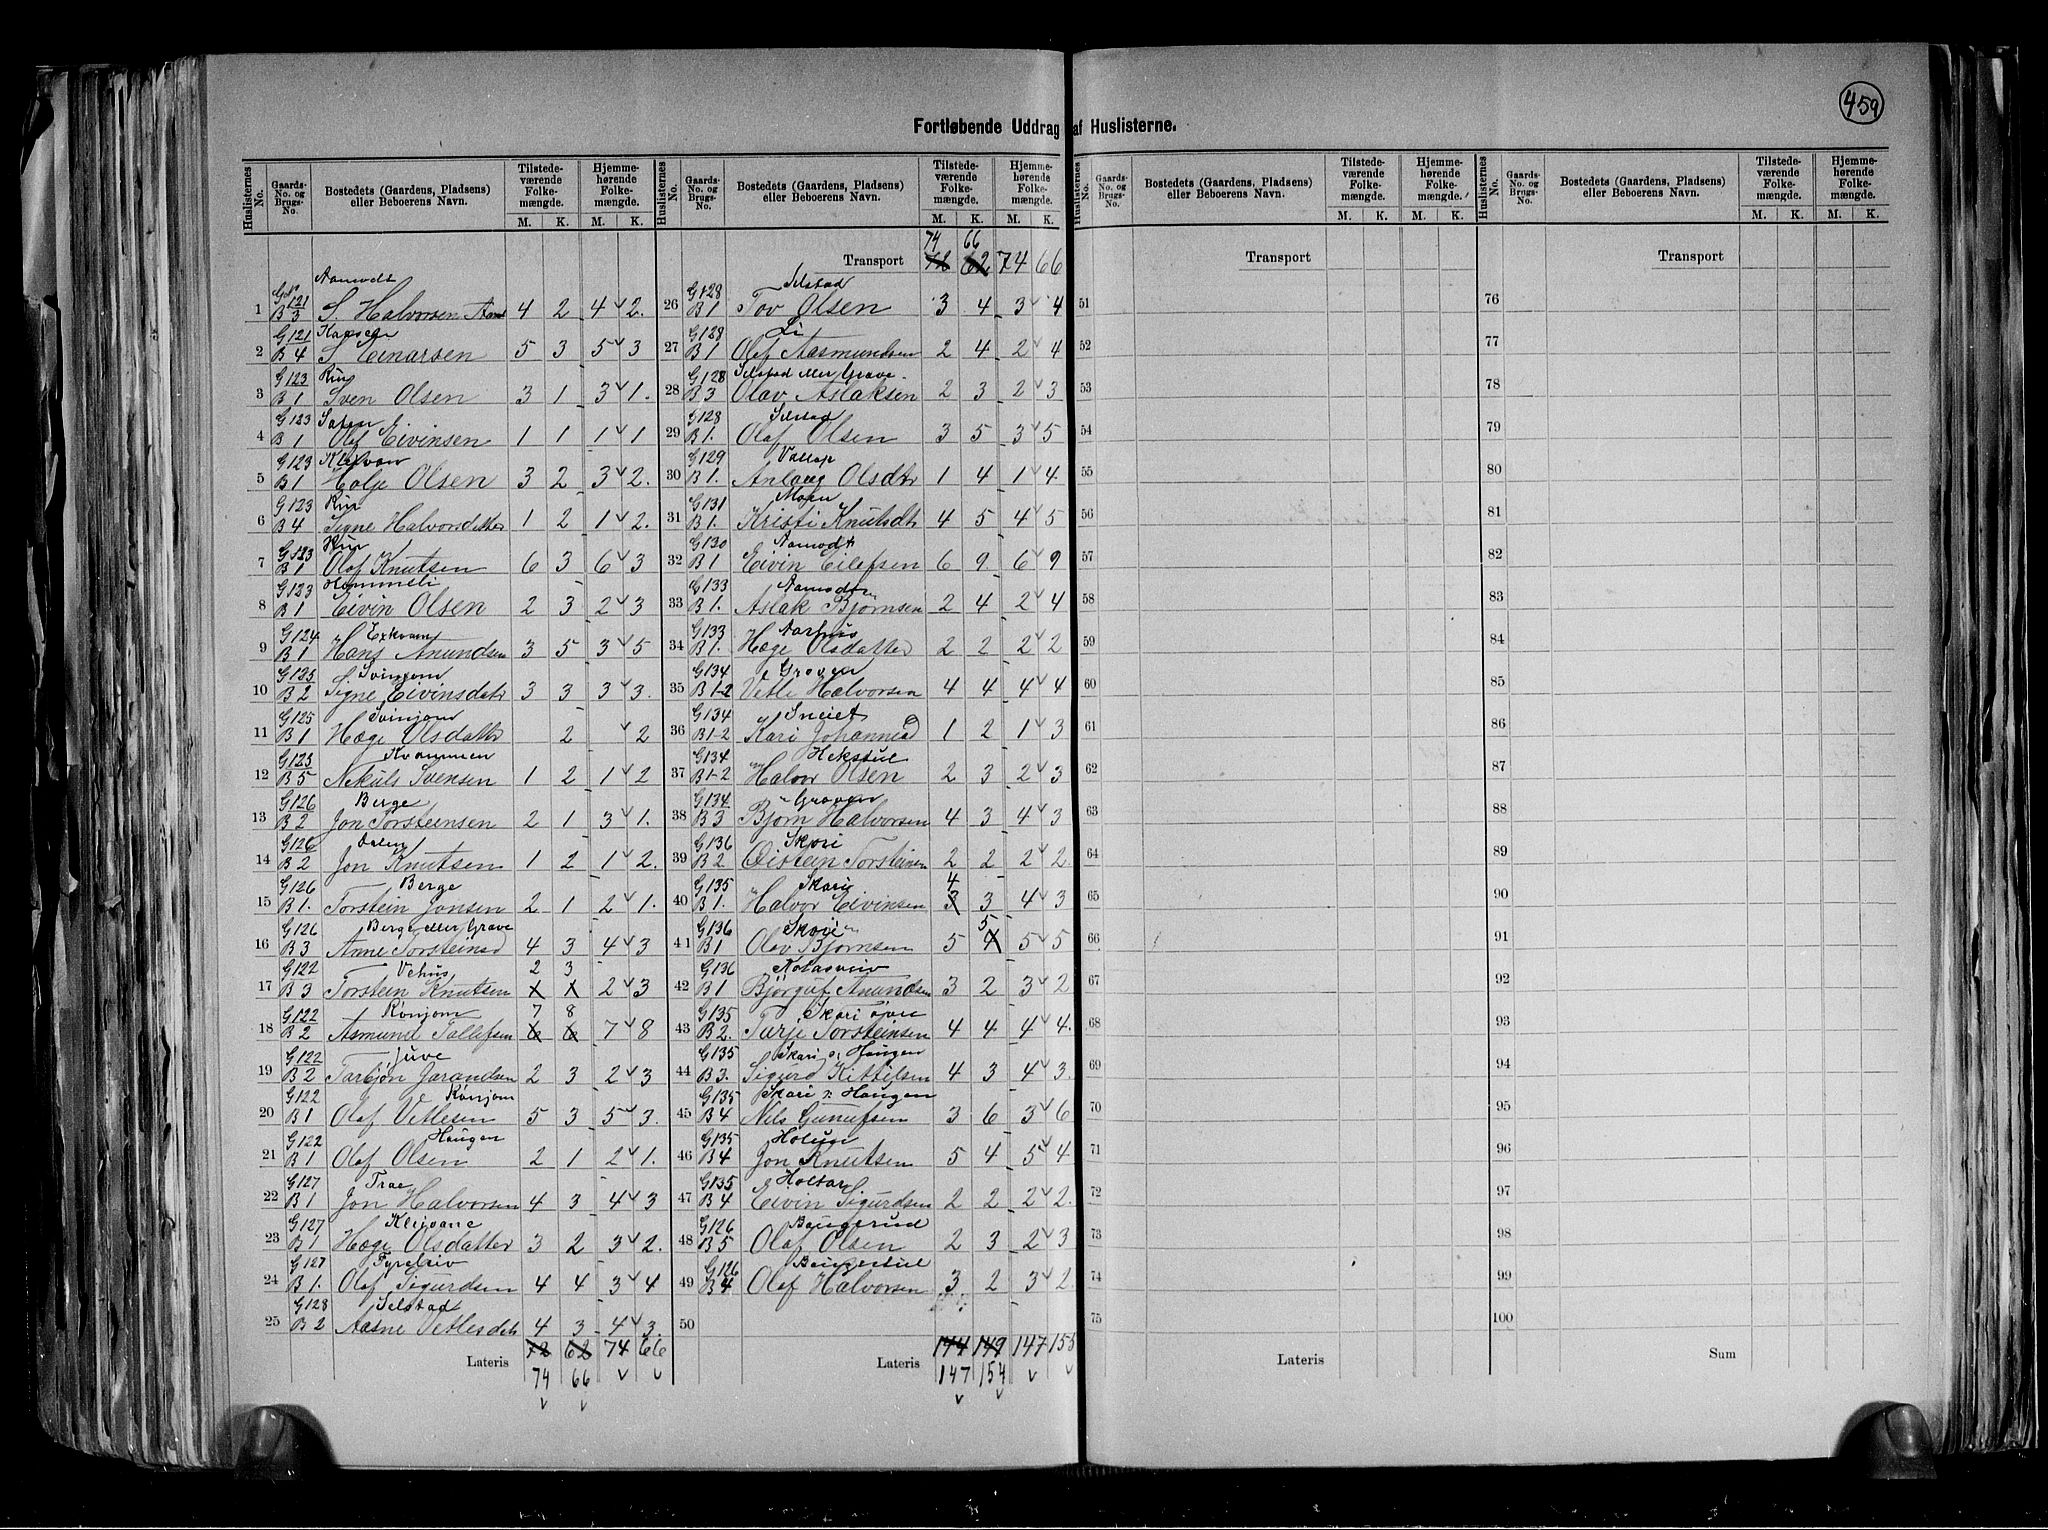 459
Fortløbende Uddrag af Huslisterne.
Huslisternes No. | Gaards-No. og Brugs-No. | Bostedets (Gaardens, Pladsens) eller Beboerens Navn. | Tilstedeværende Folkemængde. M. K. | Hjemmehørende Folkemængde. M. K.
1 G121 B3 Aamodt S. Halvorsen 4 2 4 2.
2 G121 B4 S Einarsen 5 3 5 3
3 G123 B1 Rui Sven Olsen 3 1 3 1.
4 G123 B1 Olaf Eivinsen 1 1 1 1
5 G123 B1 Holje Olsen 3 2 3 2.
6 G123 B4 Rui Signe Halvorsdatter 1 2 1 2.
7 G123 B1 Rui Olaf Knutsen 6 3 6 3
8 G123 B1 Hommeli Eivin Olsen 2 3 2 3
9 G124 B1 Hans Anundsen 3 5 3 5
10 G125 B2 Svinjom Signe Eivinsdatr 3 3 3 3.
11 G125 B1 Svinjom Hæge Olsdattr 2 2
12 G125 B5 Kvammen Nekuls Svensen 1 2 1 2
13 G126 B2 Berge Jon Torsteinsen 2 1 3 1.
14 G126 B2 Jon Knutsen 1 2 1 2.
15 G126 B1. Berge Torstein Jonsen 2 1 2 1.
16 G126 B3 Berge eller Grave Anne Torsteinsd 4 3 4 3
17 G122 B3 Vehus Torstein Knutsen 2 3 2 3
18 G122 B2 Rønjom Asmund Tallefsen 7 8 6 6 7 8
19 G122 B2 Juve Tarbjøn Jarandsen 2 3 2 3
20 G122 B1 Rønjom Olaf Vetlesen 5 3 5 3.
21 G122 B1 Haugen Olaf Olsen 2 1 2 1.
22 G127 B1 Trae Jon Halvorsen 4 3 4 3
23 G127 B1 Kleivane Hæge Olsdatter 3 2 3 2.
24 G127 B1. Fyreleiv Olaf Sigurdsen 4 4 3 4
25 G128 B2 Selstad Aasne Vetlesdatr 4 3 4 3.
Lateris 72 62 74 66
74 66
Transport 72 62 74 66
74 66
26 G128 B1 Selstad Tov Olsen 3 4 3 4
27 G128 B1 Li Olaf Aasmundsen 2 4 2 4
28 G128 B3 Selstad eller Grave Olav Aslaksen 2 3 2 3
29 G128 B1. Selstad Olaf Olsen 3 5 3 5
30 G129 B1. Anlaug Olsdtr 1 4 1 4.
31 G131 B1. Moen Kristi Knutsdtr 4 5 4 5
32 G130 B1 Aamodt Eivin Eilefsen 6 9 6 9
33 G133 B1. Aslak Bjørnsen 2 4 2 4
34 G133 B1. Aarhus Hæge Olsdatter 2 2 2 2
35 G134 B1-2 Graven Vetle Halvorsen 4 4 4 4
36 G134 B1-2 Sneiet Kari Johannesd 1 2 1 3
37 G134 B1-2 Hekstul Halvor Olsen 2 3 2 3
38 G134 B3 Graven Bjørn Halvorsen 4 3 4 3
39 G136 B2 Skori Øistein Torsteinsen 2 2 2 2.
40 G135 B1. Skori Halvor Eivinsen 4 3 3 4 3
41 G136 B1 Skori Olav Bjørnsen 5 5 4 5 5
42 G136 B1 Bjørguf Anundsen 3 2 3 2
43 G135 B2. Skori øvre Tarje Torsteinsen 4 4 4 4.
44 G135 B3. Skori o: Haugen Sigurd Kittilsen 4 3 4 3.
45 G135 B4 Skari o: Haugen Nils Gunufsen 3 6 3 6
46 G135 B4 Jon Knutsen 5 4 5 4
47 G135 B4 Holtar Eivin Sigurdsen 2 2 2 2.
48 G126 B5 Baugerud Olaf Olsen 2 3 2 3
49 G126 B4 Baugestul Olaf Halvorsen 3 2 3 2.
50
Lateris 144 149 147 155
147 154
Huslisternes No. | Gaards-No. og Brugs-No. | Bostedets (Gaardens, Pladsens) eller Beboerens Navn. | Tilstedeværende Folkemængde. M. K. | Hjemmehørende Folkemængde. M. K.
Transport
51
52
53
54
55
56
57
58
59
60
61
62
63
64
65
66
67
68
69
70
71
72
73
74
75
Lateris
Transport
76
77
78
79
80
81
82
83
84
85
86
87
88
89
90
91
92
93
94
95
96
97
98
99
100
Sum